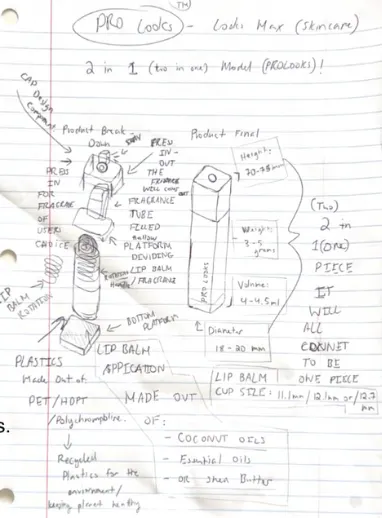 TM
PRO Looks - Looks Max (skincare)
2 in 1 (two in one) Model (PROLOOKS)!
CAP Design
Component
Product Break-
Down
Product Final
PRESS
IN -
OUT
THE
FRAGRANCE
WILL COME OUT
PRESS
IN
FOR
FRAGRANCE
OF
USERS
CHOICE
FRAGRANCE
TUBE
FILLED
Hollow
PLATFORM
DIVIDING
LIP BALM
/ FRAGRANCE
LIP
BALM
ROTATION
BOTTOM
PLATFORM
PRO LOOKS
Height:
Weight:
3-5
grams
Volume:
4-4.5ml
Diameter
18-20 mm
(Two)
2 in
1(ONE)
PIECE
IT
WILL
ALL
CONNET
TO BE
ONE PIECE
LIP BALM
CUP SIZE: 11.1mm / 12.1mm or /12.7
mm
LIP BALM
APPLICATION
PLASTICS
Made Out of
PET/HDPT
MADE OUT
OF:
- COCONUT OILS
- Essential Oils
- OR Shea Butter
Recycled
Plastics for the
environment/
keeping planet healthy
s.